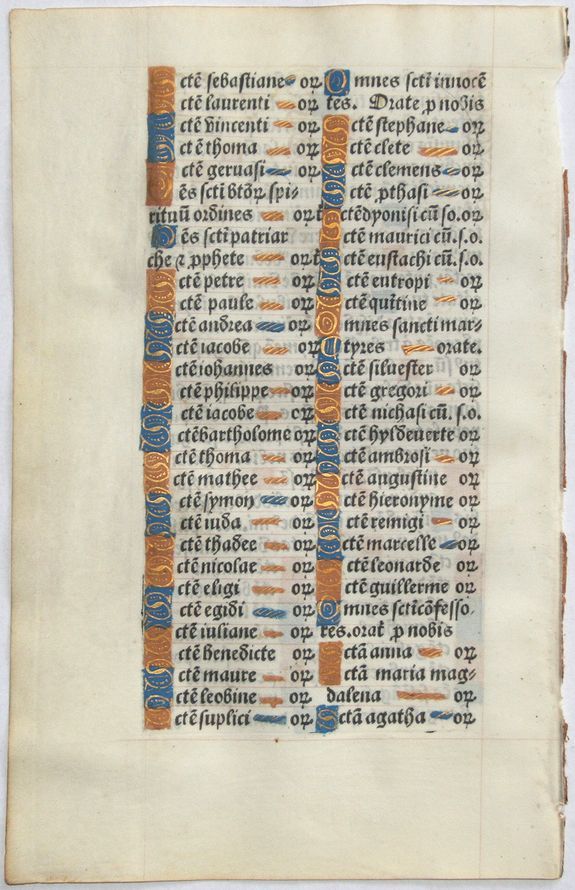 Sctẽ sebastiane oꝝ
Sctẽ laurenti oꝝ
Sctẽ vincenti oꝝ
Sctẽ thoma oꝝ
Sctẽ geruasi oꝝ
Oẽs scti btõꝝ spi-
rituũ ordines oꝝ
Oẽs scti patriar
che ⁊ ꝓphete oꝝ
Sctẽ petre oꝝ
Sctẽ paule oꝝ
Sctẽ andrea oꝝ
Sctẽ iacobe oꝝ
Sctẽ iohannes oꝝ
Sctẽ philippe oꝝ
Sctẽ iacobe oꝝ
Sctẽ bartholome oꝝ
Sctẽ thoma oꝝ
Sctẽ mathee oꝝ
Sctẽ symon oꝝ
Sctẽ iuda oꝝ
Sctẽ thadee oꝝ
Sctẽ nicolae oꝝ
Sctẽ eligi oꝝ
Sctẽ egidi oꝝ
Sctẽ iuliane oꝝ
Sctẽ benedicte oꝝ
Sctẽ maure oꝝ
Sctẽ leobine oꝝ
Sctẽ suplici oꝝ
Omnes scti innocẽ
tes. Orate ꝓ nobis
Sctẽ stephane oꝝ
Sctẽ clete oꝝ
Sctẽ clemens oꝝ
Sctẽ ꝓthasi oꝝ
Sctẽ dyonisi cũ so. oꝝ
Sctẽ maurici cũ. s. o.
Sctẽ eustachi cũ. s. o.
Sctẽ eutropi oꝝ
Sctẽ quĩtine oꝝ
Omnes sancti mar-
tyres orate.
Sctẽ siluester oꝝ
Sctẽ gregori oꝝ
Sctẽ nichasi cũ. s. o.
Sctẽ hyldeuerte oꝝ
Sctẽ ambrosi oꝝ
Sctẽ augustine oꝝ
Sctẽ hieronyme oꝝ
Sctẽ remigi oꝝ
Sctẽ marcelle oꝝ
Sctẽ leonarde oꝝ
Sctẽ guillerme oꝝ
Omnes scti cõfesso-
res. orat̃ ꝓ nobis
Sctã anna oꝝ
Sctã maria mag-
dalena oꝝ
Sctã agatha oꝝ